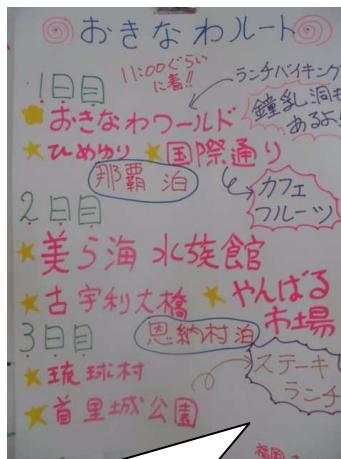 おきなわルート
1日目
11:00ぐらい
に着!!
ランチバイキング
おきなわワールド
鐘乳洞も
あるよ!
ひめゆり 国際通り
那覇 泊
カフェ
フルーツ
2日目
美ら海 水族館
古宇利大橋
やんばる
市場
3日目
恩納村泊
琉球村
ステーキ
ランチ
首里城公園